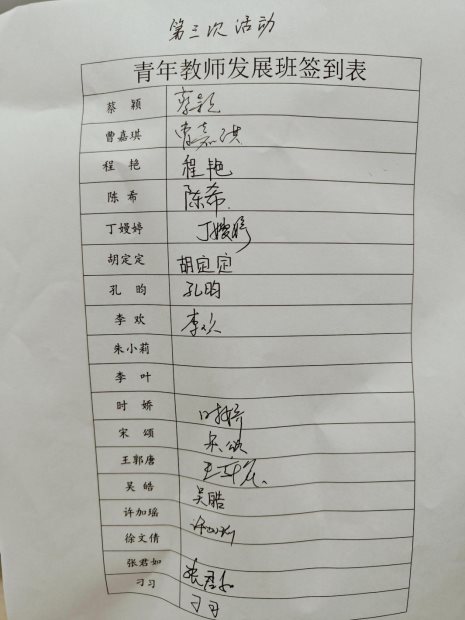 第三次活动
青年教师发展班签到表
蔡 颖 蔡颖
曹嘉琪 曹嘉琪
程 艳 程艳
陈 希 陈希
丁嫚婷 丁嫚婷
胡定定 胡定定
孔 昀 孔昀
李 欢 李欢
朱小莉
李 叶
时 娇 时娇
宋 颂 宋颂
王郭唐 王郭唐
吴 皓 吴皓
许加瑶 许加瑶
徐文倩
张君如 张君如
刁习 刁习